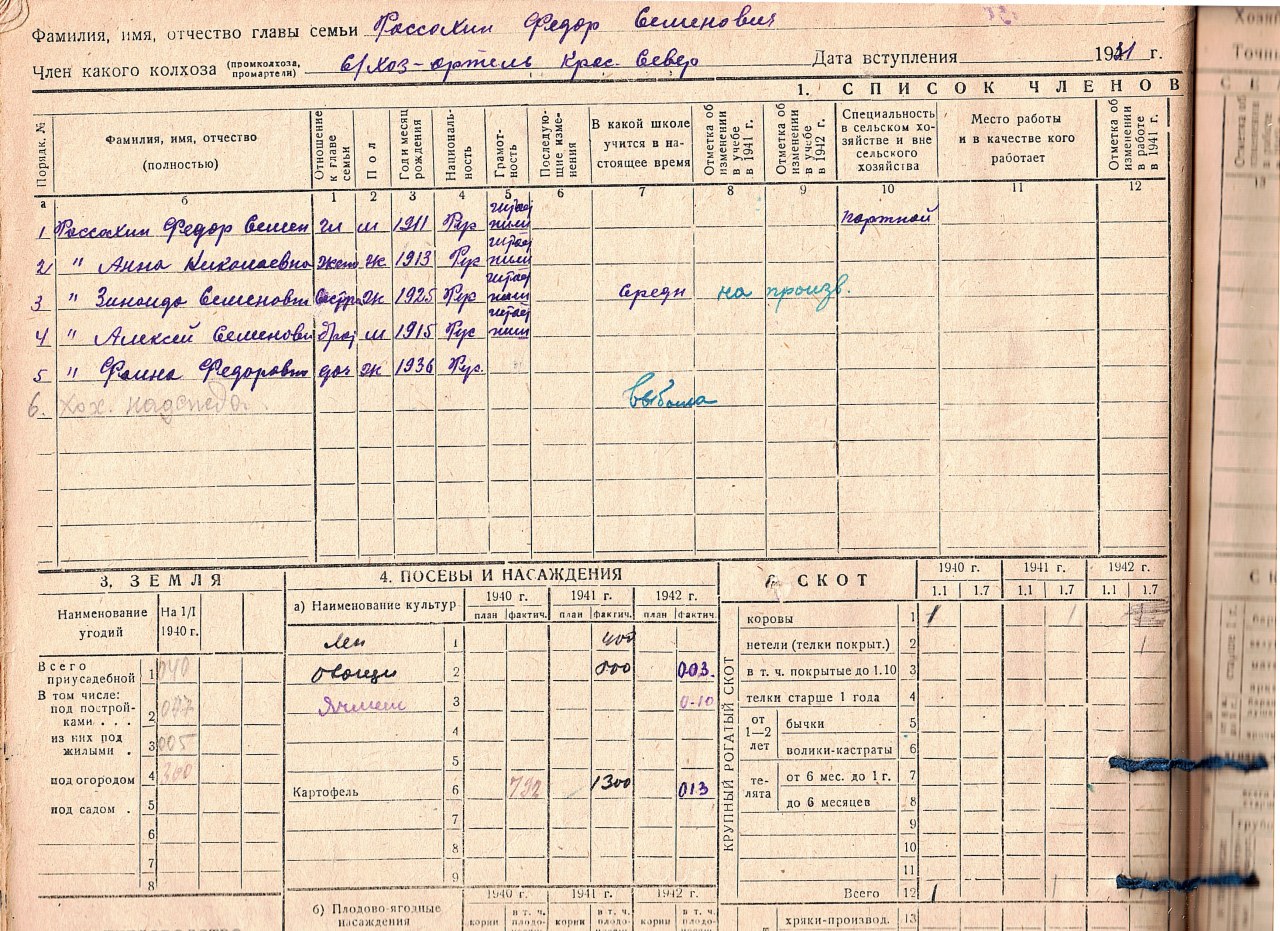 Фамилия, имя, отчество главы семьи Россохин Федор Семенович
Член какого колхоза (промколхоза, промартели) С/хоз-артель Крас. Север Дата вступления 1931 г.
1. СПИСОК ЧЛЕНОВ
Порядк. № Фамилия, имя, отчество (полностью) Отношение к главе семьи Пол Год и месяц рождения Националь-ность Грамот-ность Последую-щие изме-нения В какой школе учится в на-стоящее время Отметка об изменении в учебе в 1941 г. Отметка об изменении в учебе в 1942 г. Специальность в сельском хо-зяйстве и вне сельского хозяйства Место работы и в качестве кого работает Отметка об изменении в работе в 1941 г.
а б 1 2 3 4 5 6 7 8 9 10 11 12
1 Россохин Федор Семен гл м 1911 Рус читает пишет портной
2 " Анна Николаевна жена ж 1913 Рус читает пишет
3 " Зинаида Семеновн сестра ж 1925 Рус читает пишет средн на произв.
4 " Алексей Семенови брат м 1915 Рус читает пишет
5 " Фаина Федоровн доч ж 1936 Рус.
6. хох. надежда выбыла
3. ЗЕМЛЯ
Наименование угодий На 1/I 1940 г.
Всего приусадебной 1 040
В том числе: под построй-ками . . . 2 077
из них под жилыми . 3 005
под огородом 4 300
под садом . 5
6
7
8
4. ПОСЕВЫ И НАСАЖДЕНИЯ
а) Наименование культур 1940 г. 1941 г. 1942 г.
план фактич. план фактич. план фактич.
Лен 1 400
Овощи 2 500 0.03.
Ячмень 3 0-10
4
5
Картофель 6 792 1300 013
7
8
9
б) Плодово-ягодные насаждения 1940 г. 1941 г. 1942 г.
корни в т. ч. плодо- корни в т. ч. плодо- корни в т. ч. плодо-
СКОТ
1940 г. 1941 г. 1942 г.
1.1 1.7 1.1 1.7 1.1 1.7
КРУПНЫЙ РОГАТЫЙ СКОТ
коровы 1 1 1
нетели (телки покрыт.) 2 1
в т. ч. покрытые до 1.10 3
телки старше 1 года 4
от 1—2 лет бычки 5
волики-кастраты 6
те-лята от 6 мес. до 1 г. 7
до 6 месяцев 8
9
10
11
Всего 12 1 1
хряки-производ. 13